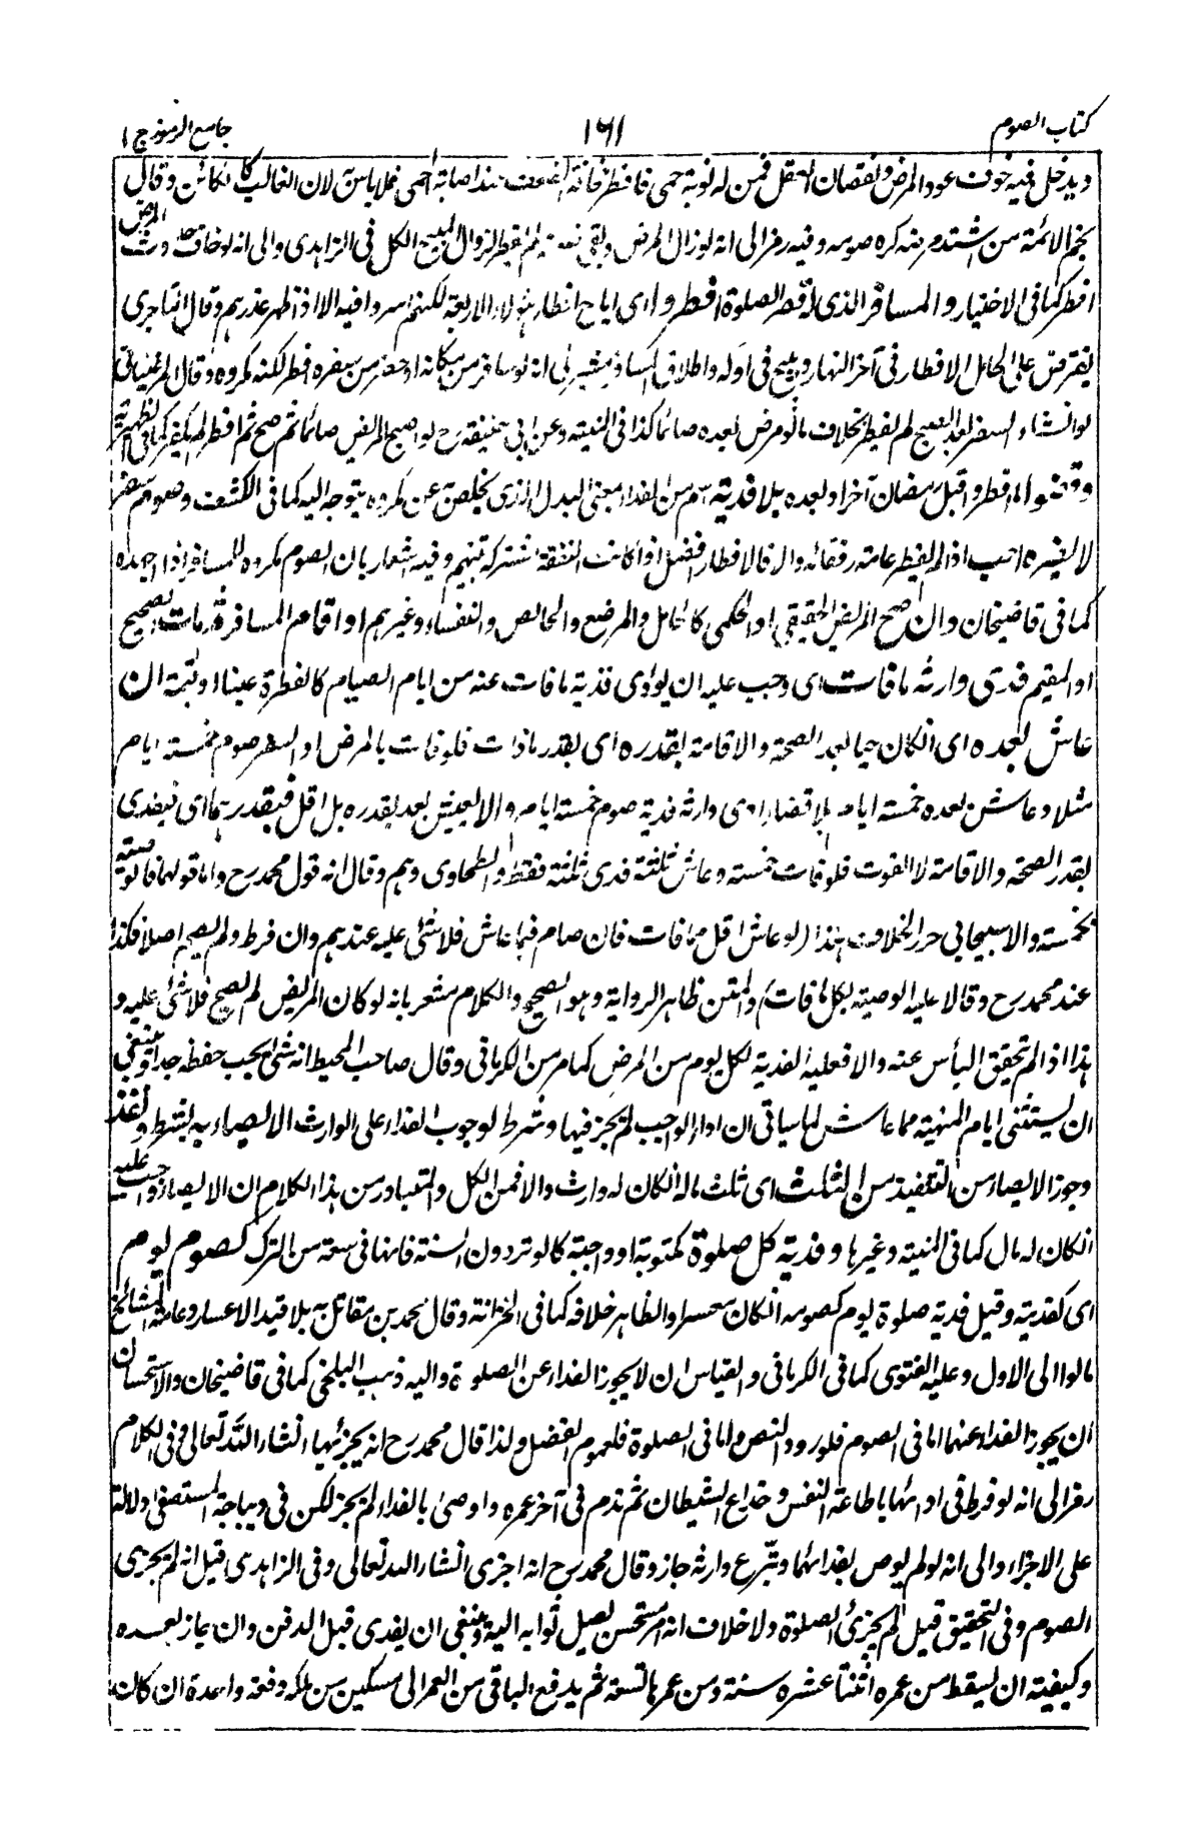 كتاب الصوم
١٦١
جامع الرموز ج ١
ويدخل فيه خوف عود المرض ونقصان العقل فمن له نوبة حمى فافطر مخافة الضعف عند اصابة الحمى فلا باس لان الغالب كالكائن وقال
نجم الائمة من اشتد مرضه كره صومه وفيه رمز الى انه لو زال المرض وبقى ضعفه لم يفطر لزوال المبيح الكل فى الزاهدى والى انه لو خاف حدوث المرض
افطر كما فى الاختيار والمسافر الذى له قصر الصلوة افطروا اى اباح افطار هؤلاء الاربعة لكنهم اسروا فيه الا اذا ظهر عذرهم وقال التاجرى
يفترض على الحامل الافطار فى آخر النهار ويبيح فى اوله واطلاق المسافر مشير الى انه لو سافر من مكانه او حضر من سفره افطر لكنه مكروه وقال المرغينانى
لو انشاء السفر بعد الصبح لم يفطر بخلاف ما لو مرض بعده صائما كذا فى المنية وعن ابى حنيفة رح لو اصبح المريض صائما ثم صح ثم افطر لم يكفر كما فى الظهيرية
وقضوا ما افطروا قبل رمضان آخر او بعده بلا فدية اسم من الفداء بمعنى البدل الذى يخلص به عن مكروه يتوجه اليه كما فى الكشف وصوم سفر
لا يضره احب اذا لم يفطر عامة رفقائه والا فالافطار افضل اذا كانت النفقة مشتركة بينهم وفيه اشعار بان الصوم مكروه للمسافر اذا اجهده
كما فى قاضيخان وان صح المريض الحقيقى او الحكمى كالحامل والمرضع والحائض والنفساء وغيرهم او اقام المسافر ثم مات الصحيح
او المقيم فدى وارثه ما فات اى وجب عليه ان يؤدى فدية ما فات عنه من ايام الصيام كالفطرة عينا او قيمة ان
عاش بعده اى انكان حيا بعد الصحة والاقامة بقدره اى بقدر ما فات فلو فات بالمرض او السفر صوم خمسة ايام
مثلا وعاش بعده خمسة ايام بلا قضاء ادى وارثه فدية صوم خمسة ايام والا يعش بعد بقدره بل اقل فبقدرهما اى فيفدى
بقدر الصحة والاقامة لا الفوت فلو فات خمسة وعاش ثلثة فدى ثلثة فقط والطحاوى وهم وقال انه قول محمد رح واما قولهما فالوصية
بخمسة والاسبيجابى حرر الخلاف هنذا لو عاش اقل مما فات فان صام فيما عاش فلا شئ عليه عندهم وان فرط ولم يصم اصلا فكذا
عند محمد رح وقالا عليه الوصية بكل ما فات والمتن ظاهر الرواية وهو الصحيح والكلام مشعر بانه لو كان المريض لم يصح فلا شئ عليه و
هذا اذا لم تحقق الياس عنه والا فعليه الفدية لكل يوم من المرض كما مر من الكرمانى وقال صاحب المحيط انه شئ يجب حفظه جدا وينبغى
ان يستثنى ايام المنهية مما عاش لما سياتى ان اداء الواجب لم يجز فيها وشرط لوجوب الفداء على الوارث الايصاء به بشرطه ونفذ
وجوز الايصاء من التنفيذ من الثلث اى ثلث ماله انكان له وارث والا فمن الكل والمتبادر من هذا الكلام ان الايصاء واجب عليه
انكان له مال كما فى المنية وغيرها وفدية كل صلوة مكتوبة او واجبة كالوتر دون السنة فانها فى سعة من الترك كصوم يوم
اى كفدية وقيل فدية صلوة يوم كصومه انكان معسرا والظاهر خلافه كما فى الخزانة وقال محمد بن مقاتل به بلا قيد الاعسار وعامة المشائخ
مالوا الى الاول وعليه الفتوى كما فى الكرمانى والقياس ان لا يجوز الفداء عن الصلوة واليه ذهب البلخى كما فى قاضيخان والاستحسان
ان يجوز الفداء عنهما اما فى الصوم فلورود النص واما فى الصلوة فلعموم الفضل ولذا قال محمد رح انه يجزئها انشاء الله تعالى وفى الكلام
رمز الى انه لو فرط فى ادائها باطاعة النفس وخداع الشيطان ثم ندم فى آخر عمره واوصى بالفداء لم يجز لكن فى ديباجة المستصفى دلالة
على الاجزاء والى انه لو لم يوص بفدائهما وتبرع وارثه جاز وقال محمد رح انه اجزى انشاء الله تعالى وفى الزاهدى قيل انه لم يجزى
الصوم وفى التحقيق قيل لم يجزئ الصلوة ولا خلاف انه امر مستحسن يصل ثوابه اليه وينبغى ان يفدى قبل الدفن وان جاز بعده
وكيفيته ان يسقط من عمره اثنتا عشره سنة ومن عمرها تسعة ثم يدفع الباقى من العمر الى مسكين من ملكه دفعة واحدة ان كان